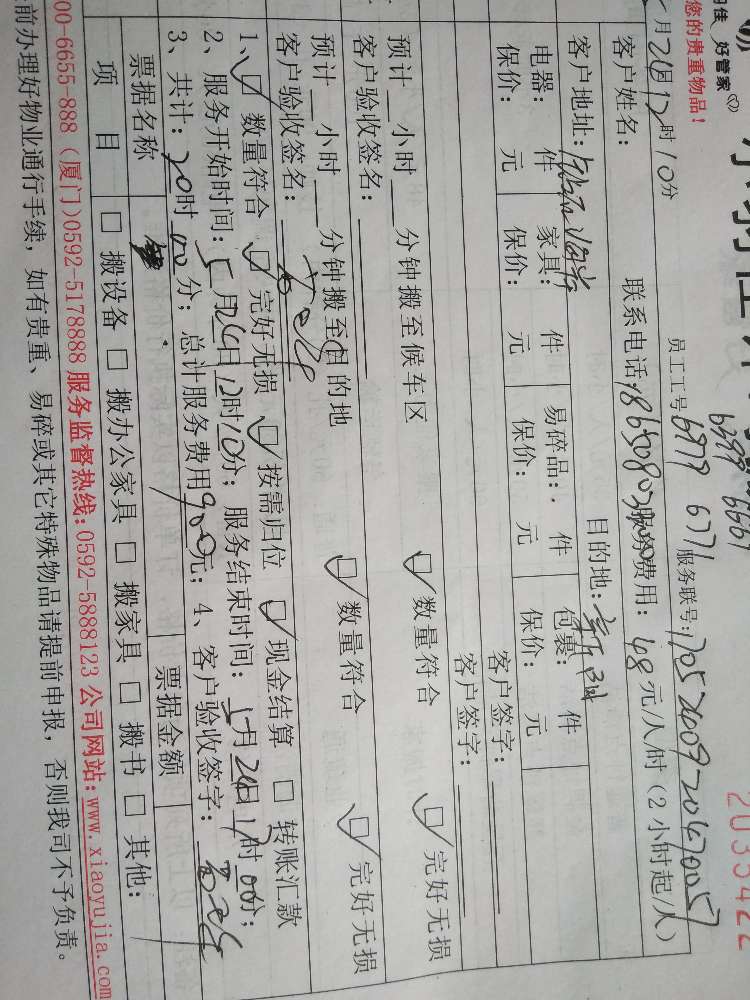 佳 好管家
您的贵重物品！
2035422
6399 6661
月26日12时10分 员工工号6979 6771 服务联号:
客户姓名： 联系电话: 服务费用：48元/人/时（2小时起/人）
客户地址: 目的地:
电器： 件 家具： 件 易碎品： 件 包裹： 件 客户签字：
保价： 元 保价： 元 保价： 元 保价： 元
客户签字：
预计__小时__分钟搬至候车区 ☑数量符合 ☑完好无损
客户验收签名：
预计__小时__分钟搬至目的地 ☑数量符合 ☑完好无损
客户验收签名：
1、☑数量符合 ☑完好无损 ☑按需归位 ☑现金结算 □转账汇款
2、服务开始时间:5月26日12时10分；服务结束时间:5月26日17时00分；
3、共计:20时00分；总计服务费用900元；4、客户验收签字:
票据名称 票据金额
项 目 □搬设备 □搬办公家具 □搬家具 □搬书 □其他:
00-6655-888（厦门)0592-5178888 服务监督热线:0592-5888123 公司网站:www.xiaoyujia.com
前办理好物业通行手续，如有贵重、易碎或其它特殊物品请提前申报，否则我司不予负责。